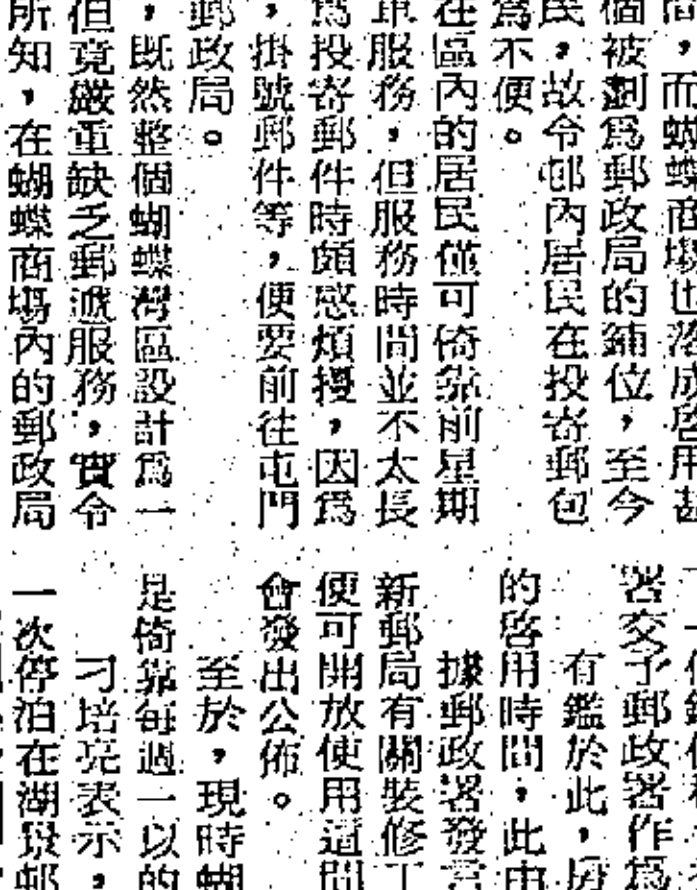 而蝴蝶商場也落成啓用甚
個被劃爲郵政局的鋪位，至今
民，故令邨內居民在投寄郵包
爲不便。
在區內的居民僅可倚靠前星期
車服務，但服務時間並不太長
爲投寄郵件時頗感煩擾，因爲
，掛號郵件等，便要前往屯門
郵政局。
，既然整個蝴蝶灣區設計爲一
但竟嚴重缺乏郵遞服務，實令
所知，在蝴蝶商場內的郵政局
署交予郵政署作爲
有鑑於此，
的啓用時間，此由
據郵政署發言
新郵局有關裝修工
便可開放使用這間
會發出公佈。
至於，現時蝴
是倚靠每週一以的
刁培亮表示，
一次停泊在湖景邨